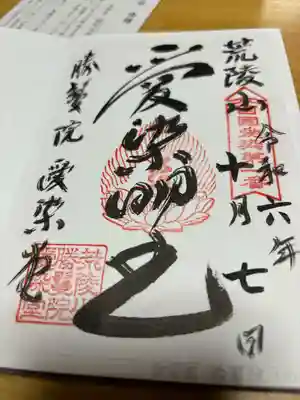 荒陵山
令和六年
十月七日
愛染明王
勝鬘院
愛染堂
荒陵山
勝鬘院
愛染堂